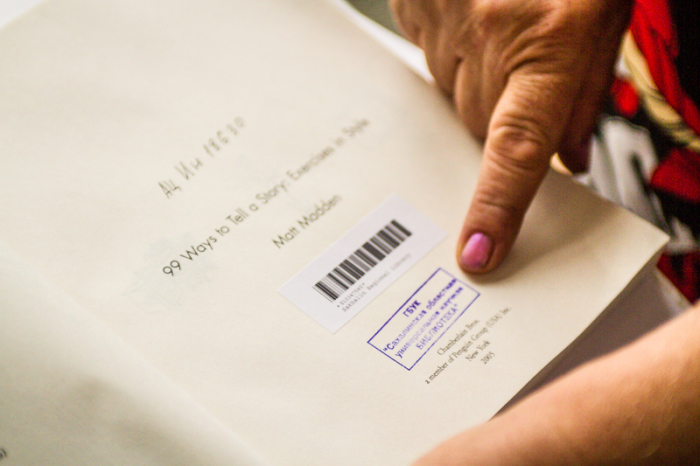 Ац Ин 18630
99 Ways to Tell a Story: Exercises in Style
Matt Madden
Sakhalin Regional Library
ГБУК
"Сахалинская областная
универсальная научная
БИБЛИОТЕКА"
Chamberlain Bros.
a member of Penguin Group (USA) Inc.
New York
2005